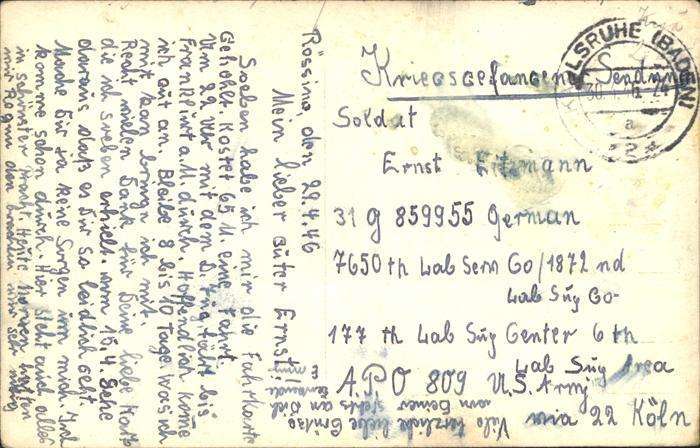 Rössing, den 29.4.46
Mein lieber guter Ernst!
Soeben habe ich mir die Fahrkarte
geholt. Kostet 65 M. eine Fahrt.
Um 22 Uhr mit dem D. Zug fährt bis
Frankfurt a.M. durch. Hoffendlich komme
ich gut an. Bleibe 8 bis 10 Tage. was ich
mit kan bringe ich mit.
Recht vielen Dank für Deine liebe Karte
die ich soeben erhielt. vom 15.4. Sehe
daraus daß es Dir so leidlich geht
Mache Dir ja keine Sorgen um mich. Ich
komme schon durch. Hier steht auch alles
in schönster Heute
mir Regen den brauchen wir sehr nötig
Viele herzliche liebe Grüße
von Deiner stets an Dich
denkenden
KARLSRUHE (BADEN)
30.4.46-24
a
22
Kriegsgefangenen Sendung
Soldat
Ernst
31 g 859955 German
7650 th Lab Serv Co/1872 nd
Lab Sup Co-
177 th Lab Sup Center 6 th
Lab Sup Area
A.P.O 809 U.S. Army
via 22 Köln